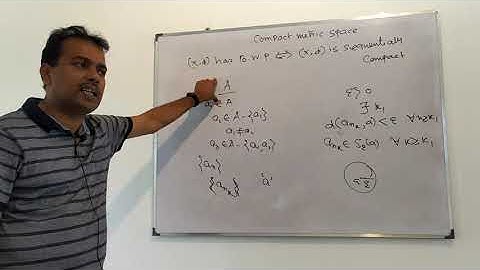 Compact metric space
(X,d) has B.W.P ⟺ (X,d) is sequentially
compact
A
a₁ ∈ A
a₂ ∈ A - {a₁}
a₁ ≠ a₂
a₃ ∈ A - {a₁,a₂}
{aₙ}
{aₙₖ} 'a'
ε > 0
∃ k₁
d(aₙₖ, a) < ε ∀ k ≥ k₁
aₙₖ ∈ Sε(a) ∀ k ≥ k₁
a ε